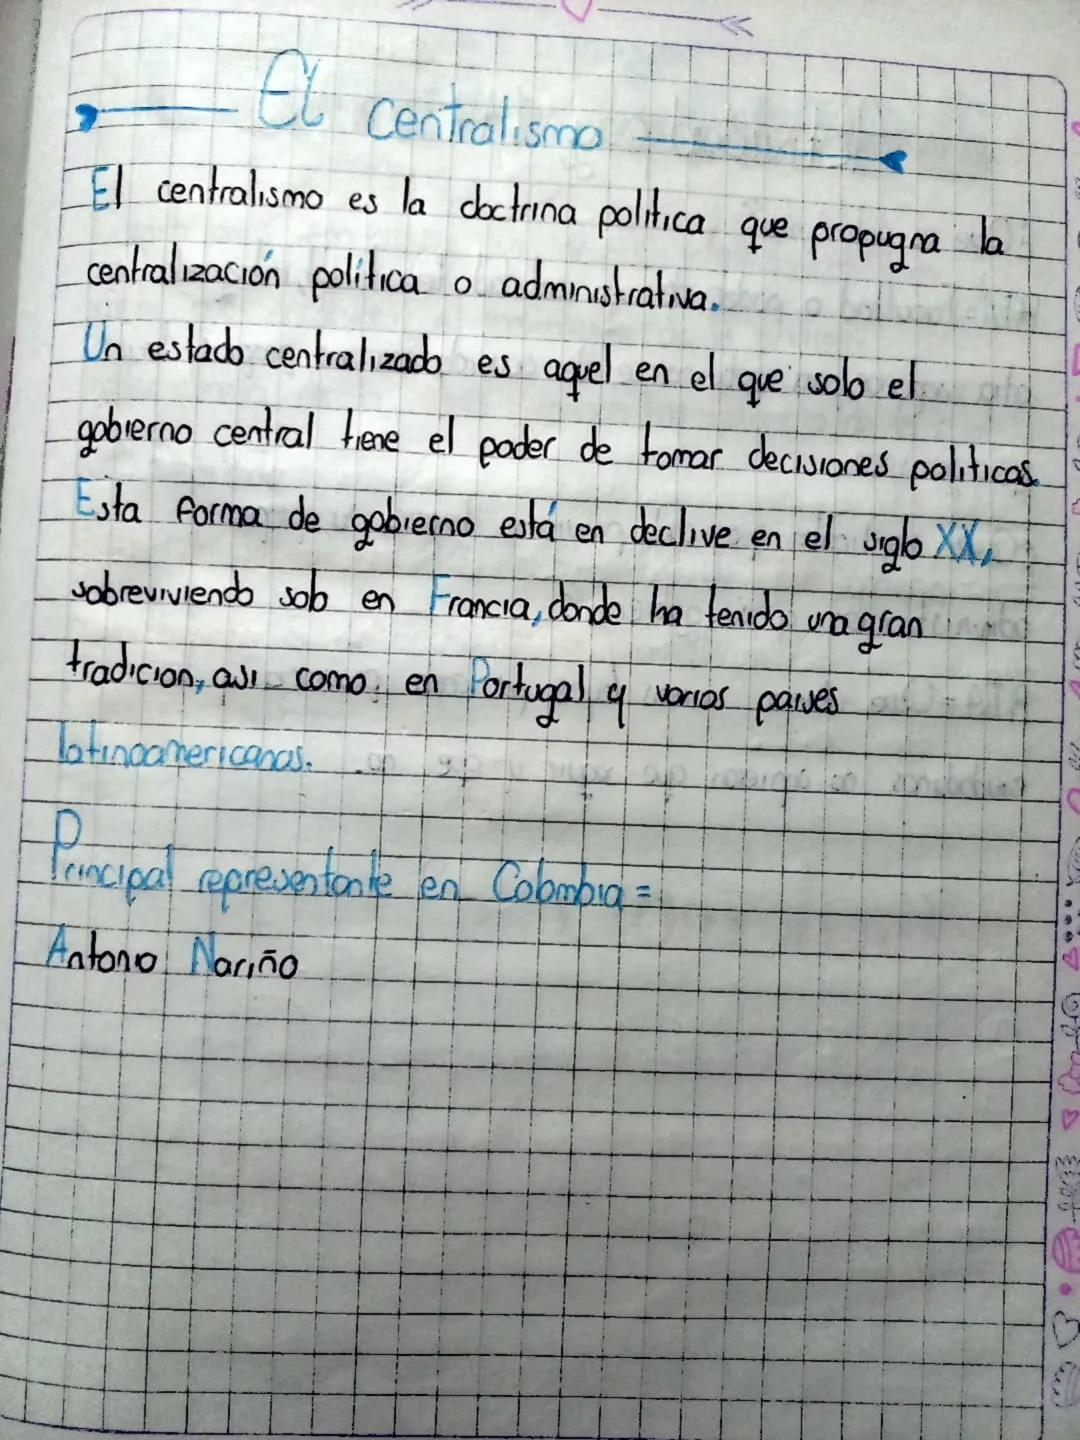 El centralismo
El centralismo es la doctrina politica que propugna la
centralización política o administrativa.
Un estado centralizado es aquel en el que solo el
gobierno central tiene el poder de tomar decisiones politicas.
Esta forma de gobierno está en declive en el siglo XX,
sobreviviendo solo en Francia, donde ha tenido una gran
tradicion, asi como en Portugal y varios paises
latinoamericanos.
Principal representante en Colombia =
Antonio Nariño